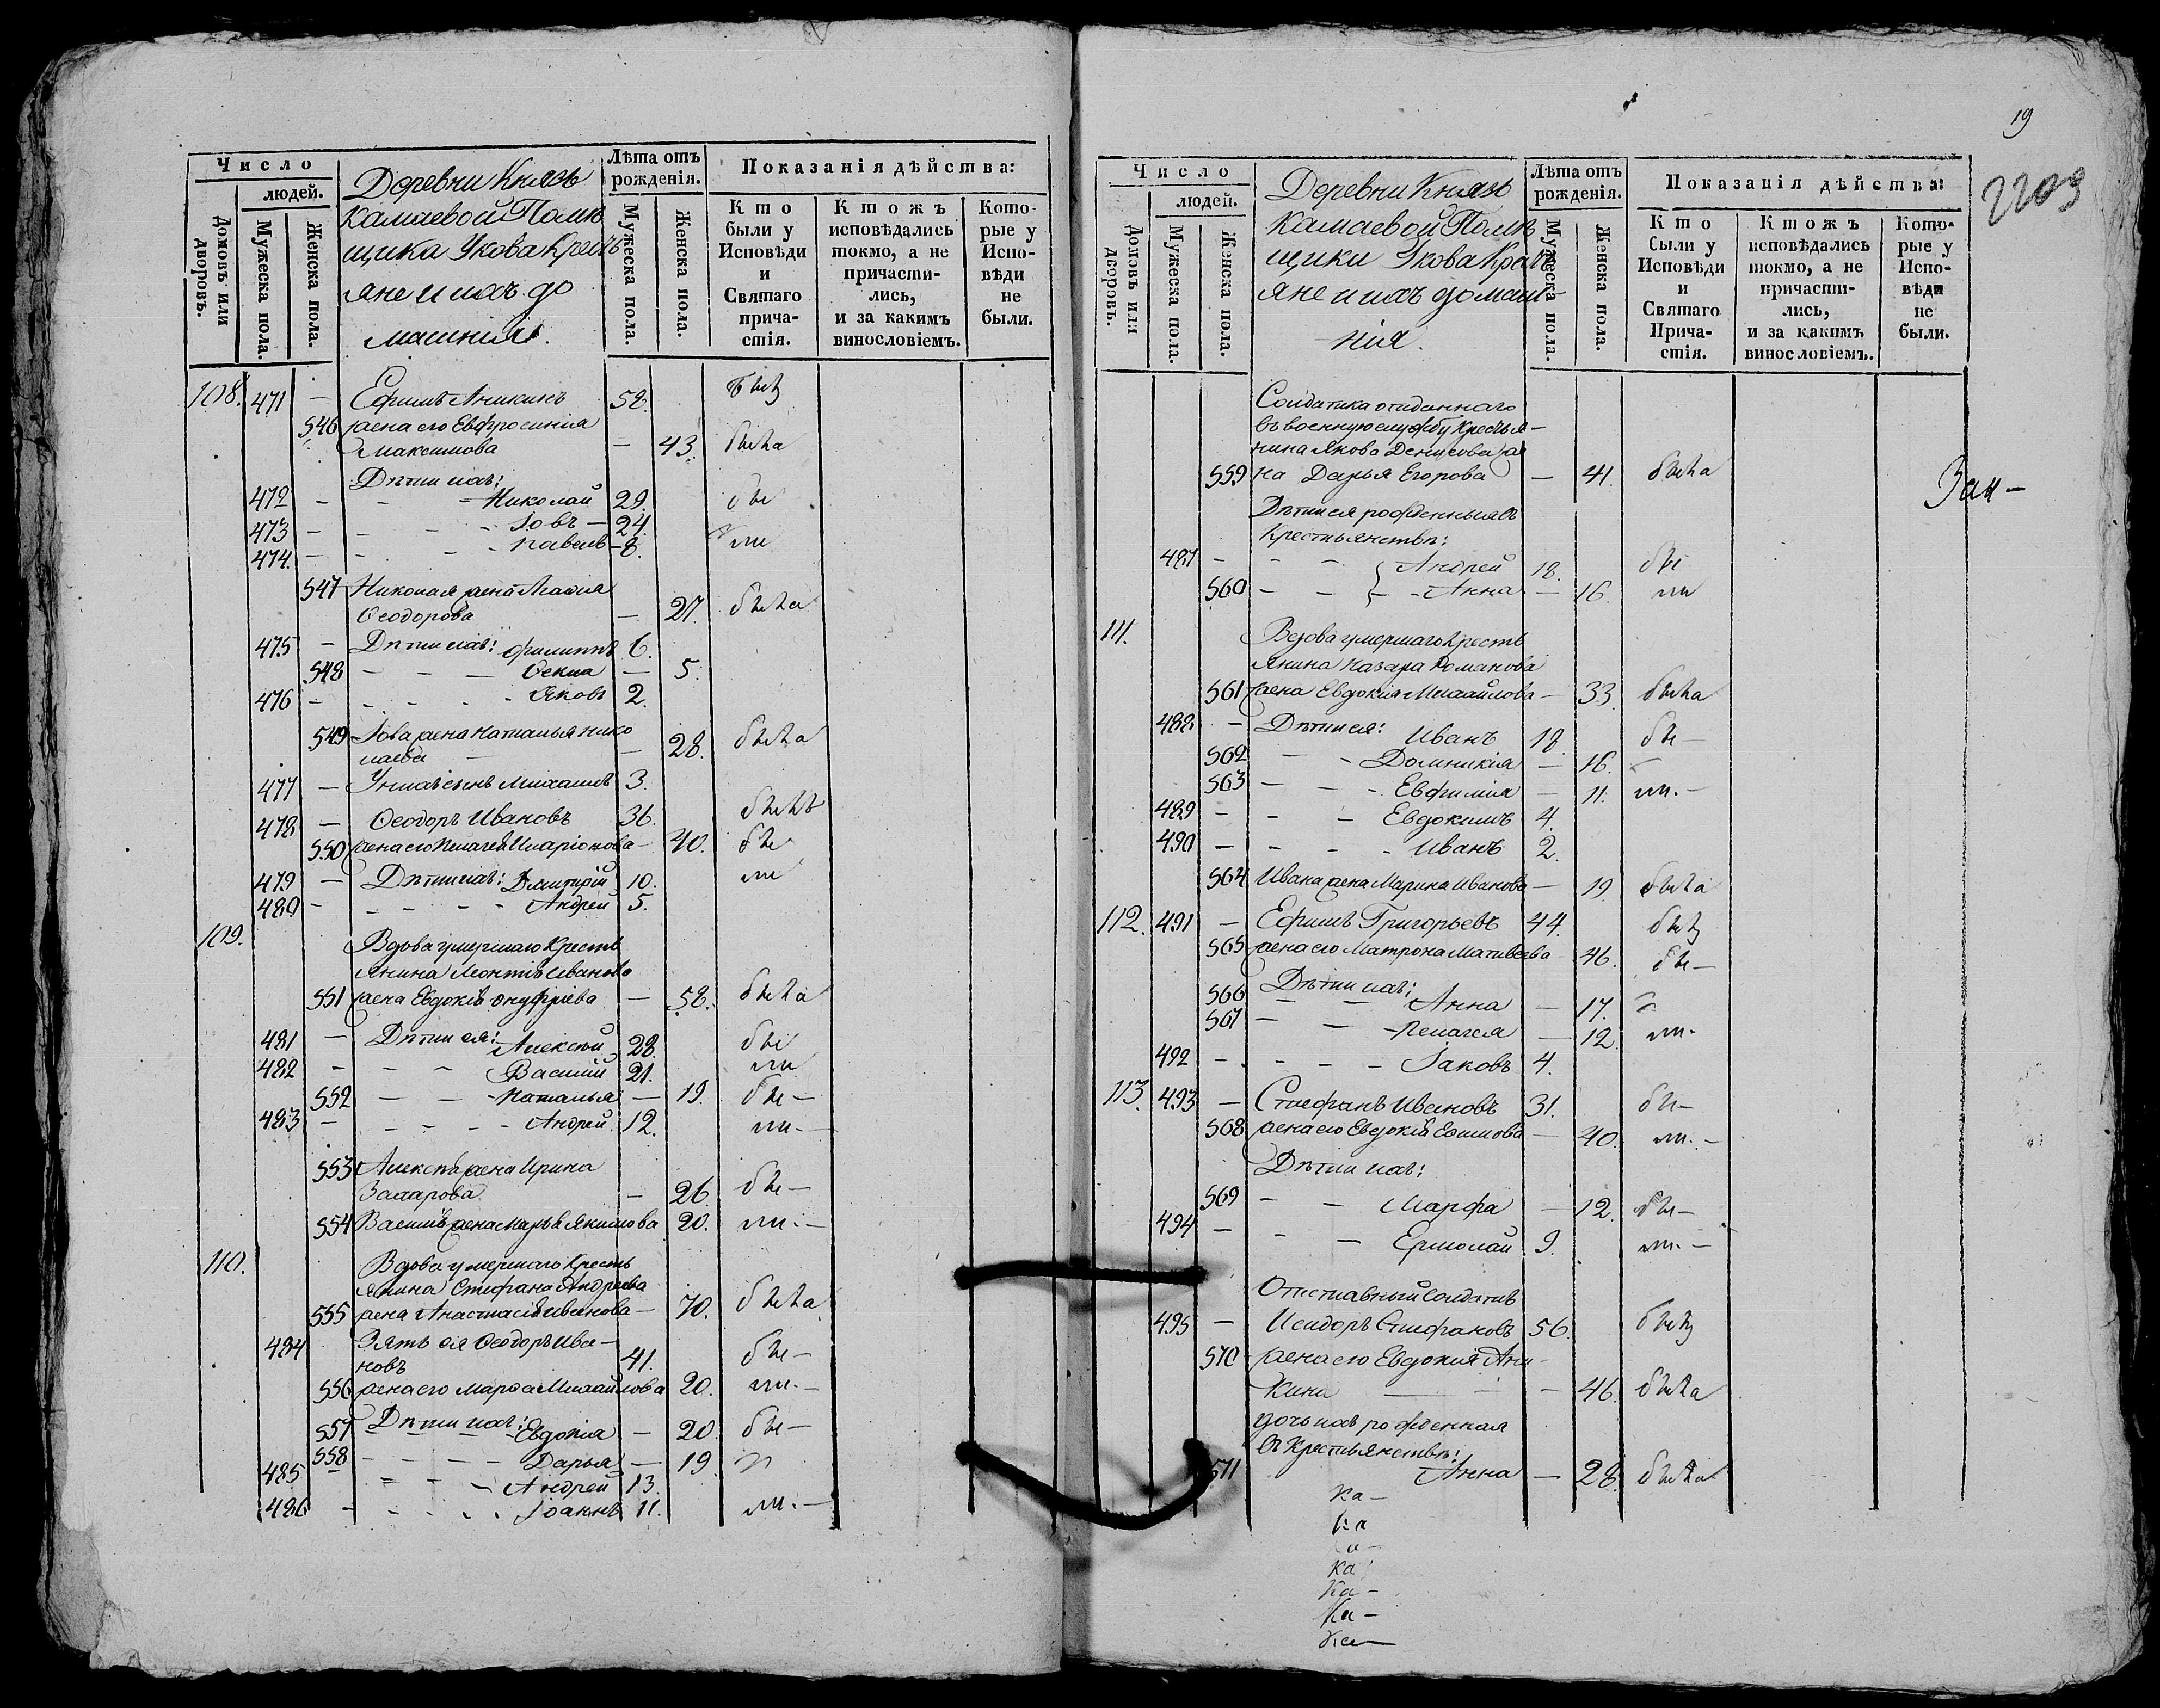 Число
людей.
Домовъ или дворовъ.
Мужеска пола.
Женска пола.
Деревни Князь
камаевой Помѣ
щика Якова Кресть
яне и ихъ до
машнія.
Лѣта отъ рожденія.
Мужеска пола.
Женска пола.
Показанія дѣйства:
Кто были у Исповѣди и Святаго причастія.
Ктожъ исповѣдались токмо, а не причастились, и за какимъ винословіемъ.
Которые у Исповѣди не были.
108. 471 — Ефимъ Аникинъ 58. былъ
546 жена его Евфросинія
Максимова — 43. была
Дѣти ихъ:
472 — — — Николай 29. бы
473 — — — Іовъ — 24.
474. — — — Павелъ — 8. ли
547 Николая жена Марія
Ѳеодорова — 27. была
475 — Дѣти ихъ: Филиппъ 6.
548 — — — Ѳекла — 5.
476 — — — Яковъ 2.
549 Іова жена Наталья Нико
лаева — 28. была
477 — У нихъ сынъ Михаилъ 3.
478 — Ѳеодоръ Ивановъ 36. былъ
550 жена его Пелагея Иларіонова — 40. бы
479 — Дѣти ихъ: Дмитрій 10. ли
480 — — — Андрей 5.
109.
Вдова умершаго кресть
янина Леонтія Иванова
551 жена Евдокія Онуфріева — 58. была
481 — Дѣти ея: Алексѣй 28. бы
482 — — — Василій 21. ли
552 — — Наталья — 19. бы—
483 — — — Андрей 12. ли.—
553 Алексѣя жена Ирина
Захарова — 26. бы—
554 Василія жена Марья Якимова 20. ли.—
110.
Вдова умершаго кресть
янина Стефана Андреева
555 жена Анастасія Иванова — 70. была
484 Зять ея Ѳеодоръ Ива—
новъ 41. бы—
556 жена его Марѳа Михайлова 20. ли.—
557 Дѣти ихъ: Евдокія — 20. бы—
558 — — — Дарья — 19.
485 — — — Андрей 13.
486 — — — Іоаннъ 11. ли.—
19
2203
Число
людей.
Домовъ или дворовъ.
Мужеска пола.
Женска пола.
Деревни Князь
камаевой Помѣ
щики Якова Кресть
яне и ихъ домаш—
нія.
Лѣта отъ рожденія.
Мужеска пола.
Женска пола.
Показанія дѣйства:
Кто были у Исповѣди и Святаго Причастія.
Ктожъ исповѣдались токмо, а не причастились, и за какимъ винословіемъ.
Которые у Исповѣди не были.
Солдатка отданнаго
въ военную службу крестья—
нина Якова Денисова же
559 на Дарья Егорова — 41. была
Зан—
Дѣти ея рожденныя въ
крестьянствѣ:
487 — — — Андрей 18. бы
560 — — — Анна — 16. ли
111.
Вдова умершаго кресть
янина Назара Романова
561 жена Евдокія Михайлова — 33. была
488 — Дѣти ея: Иванъ 18. бы—
562 — — Домникія — 16.
563 — — — Евфимія — 11. ли.—
489 — — — Евдокимъ 4.
490 — — — Иванъ 2.
564 Ивана жена Марина Иванова — 19. была
112. 491 — Ефимъ Григорьевъ 44. былъ
565 жена его Матрона Матвѣева 46. бы—
566 Дѣти ихъ:
— — Анна — 17.
567 — — Пелагея — 12. ли.
492 — — — Іаковъ 4.
113. 493 — Стефанъ Ивановъ 31. бы—
568 жена его Евдокія Ефимова — 40. ли.—
Дѣти ихъ:
569 — — Марфа — 12. бы—
494 — — — Ермолай 9. ли.—
Отставный солдатъ
495 — Исидоръ Стефановъ 56. былъ
570 жена его Евдокія Ани—
кина — 46. была
дочь ихъ рожденная
въ крестьянствѣ:
571 Анна — 28. была
Ка—
Ка
Ка
Ка—
Ка—